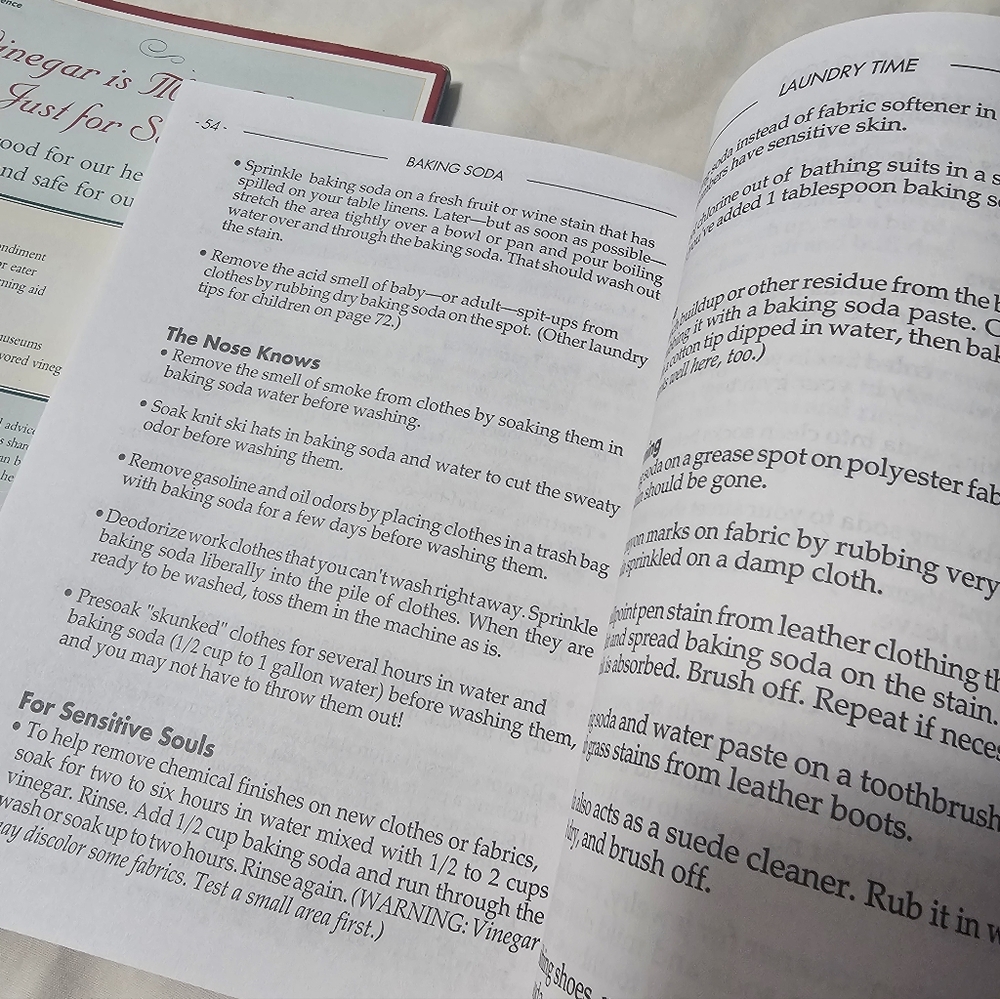 Vinegar is
Just for
ood for our he
nd safe for ou
ndiment
or eater
rning aid
useums
vored vineg
advic
s shar
an b
he
- 54 -
BAKING SODA
• Sprinkle baking soda on a fresh fruit or wine stain that has
spilled on your table linens. Later—but as soon as possible—
stretch the area tightly over a bowl or pan and pour boiling
water over and through the baking soda. That should wash out
the stain.
• Remove the acid smell of baby—or adult—spit-ups from
clothes by rubbing dry baking soda on the spot. (Other laundry
tips for children on page 72.)
The Nose Knows
• Remove the smell of smoke from clothes by soaking them in
baking soda water before washing.
• Soak knit ski hats in baking soda and water to cut the sweaty
odor before washing them.
• Remove gasoline and oil odors by placing clothes in a trash bag
with baking soda for a few days before washing them.
• Deodorize work clothes that you can't wash right away. Sprinkle
baking soda liberally into the pile of clothes. When they are
ready to be washed, toss them in the machine as is.
• Presoak "skunked" clothes for several hours in water and
baking soda (1/2 cup to 1 gallon water) before washing them,
and you may not have to throw them out!
For Sensitive Souls
• To help remove chemical finishes on new clothes or fabrics,
soak for two to six hours in water mixed with 1/2 to 2 cups
vinegar. Rinse. Add 1/2 cup baking soda and run through the
wash or soak up to two hours. Rinse again. (WARNING: Vinegar
may discolor some fabrics. Test a small area first.)
LAUNDRY TIME
soda instead of fabric softener in
mbers have sensitive skin.
chlorine out of bathing suits in a s
've added 1 tablespoon baking so
buildup or other residue from the b
bing it with a baking soda paste. C
cotton tip dipped in water, then bak
s well here, too.)
ning
soda on a grease spot on polyester fab
should be gone.
yon marks on fabric by rubbing very
sprinkled on a damp cloth.
llpoint pen stain from leather clothing th
and spread baking soda on the stain.
is absorbed. Brush off. Repeat if neces
g soda and water paste on a toothbrush
grass stains from leather boots.
also acts as a suede cleaner. Rub it in w
dry, and brush off.
ing shoes,